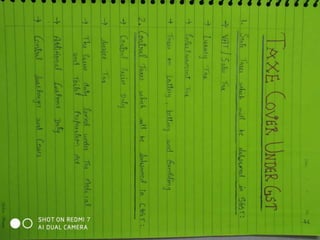 TAXE COVER UNDER GST
1. State Taxes which will be subsumed in SGST:
→ VAT / Sales Tax
→ Luxury Tax
→ Entertainment Tax
→ Taxes on Lottery, betting and Gambling
2. Central Taxes which will be subsumed in CGST:
→ Central Excise Duty
→ Service Tax
→ The Excise duty levied under the Medical
and Toilet Preparation Act
→ Additional Customs Duty
→ Central Surcharges and Cesses
SHOT ON REDMI 7
AI DUAL CAMERA